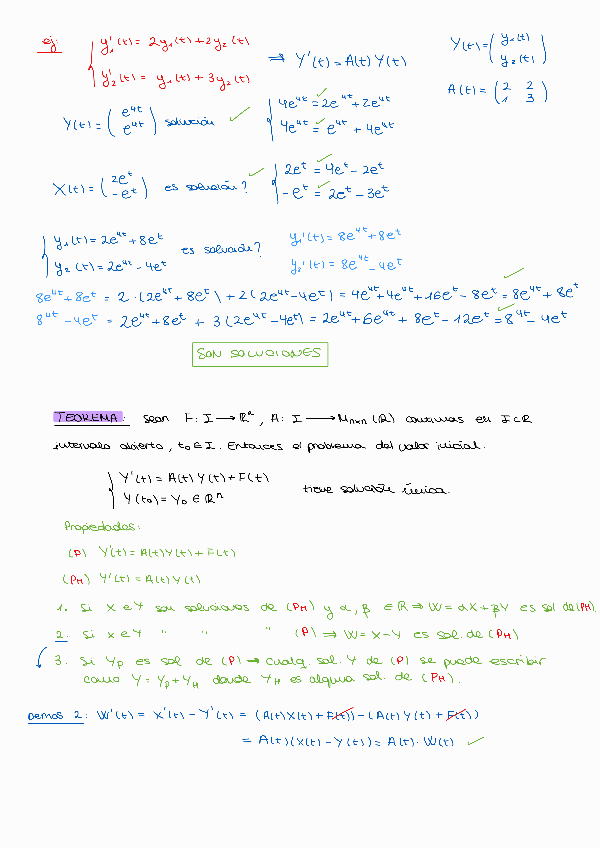 ej: { y₁'(t) = 2y₁(t) + 2y₂(t)
y₂'(t) = y₁(t) + 3y₂(t)
⇒ Y'(t) = A(t) Y(t)
Y(t) = ( y₁(t) y₂(t) )
A(t) = ( 2 2 1 3 )
Y(t) = ( e⁴ᵗ e⁴ᵗ ) solución ✓ { 4e⁴ᵗ = 2e⁴ᵗ + 2e⁴ᵗ
4e⁴ᵗ = e⁴ᵗ + 4e⁴ᵗ
X(t) = ( 2eᵗ -eᵗ ) es solución? ✓ { 2eᵗ = 4eᵗ - 2eᵗ
-eᵗ = 2eᵗ - 3eᵗ
{ y₁(t) = 2e⁴ᵗ + 8eᵗ
y₂(t) = 2e⁴ᵗ - 4eᵗ
es solución?
y₁'(t) = 8e⁴ᵗ + 8eᵗ
y₂'(t) = 8e⁴ᵗ - 4eᵗ
8e⁴ᵗ + 8eᵗ = 2 · (2e⁴ᵗ + 8eᵗ) + 2(2e⁴ᵗ - 4eᵗ) = 4e⁴ᵗ + 4e⁴ᵗ + 16eᵗ - 8eᵗ = 8e⁴ᵗ + 8eᵗ ✓
8⁴ᵗ - 4eᵗ = 2e⁴ᵗ + 8eᵗ + 3(2e⁴ᵗ - 4eᵗ) = 2e⁴ᵗ + 6e⁴ᵗ + 8eᵗ - 12eᵗ = 8⁴ᵗ - 4eᵗ ✓
SON SOLUCIONES
TEOREMA: sean F: I → ℝⁿ, A: I → Mₙₓₙ(ℝ) continuas en I⊂ℝ
intervalo abierto, t₀ ∈ I. Entonces el problema del valor inicial.
{ Y'(t) = A(t) Y(t) + F(t)
Y(t₀) = Y₀ ∈ ℝⁿ
tiene solución única.
Propiedades:
(P) Y'(t) = A(t)Y(t) + F(t)
(PH) Y'(t) = A(t)Y(t)
1. Si X e Y son soluciones de (PH) y α, β ∈ ℝ ⇒ W = αX + βY es sol de (PH).
2. Si X e Y " " " (P) ⇒ W = X - Y es sol. de (PH)
3. Si Yp es sol de (P) → cualq. sol. Y de (P) se puede escribir
como Y = Yp + YH donde YH es alguna sol. de (PH).
Demos 2: W'(t) = X'(t) - Y'(t) = (A(t)X(t) + F(t)) - (A(t)Y(t) + F(t))
= A(t)(X(t) - Y(t)) = A(t) · W(t) ✓